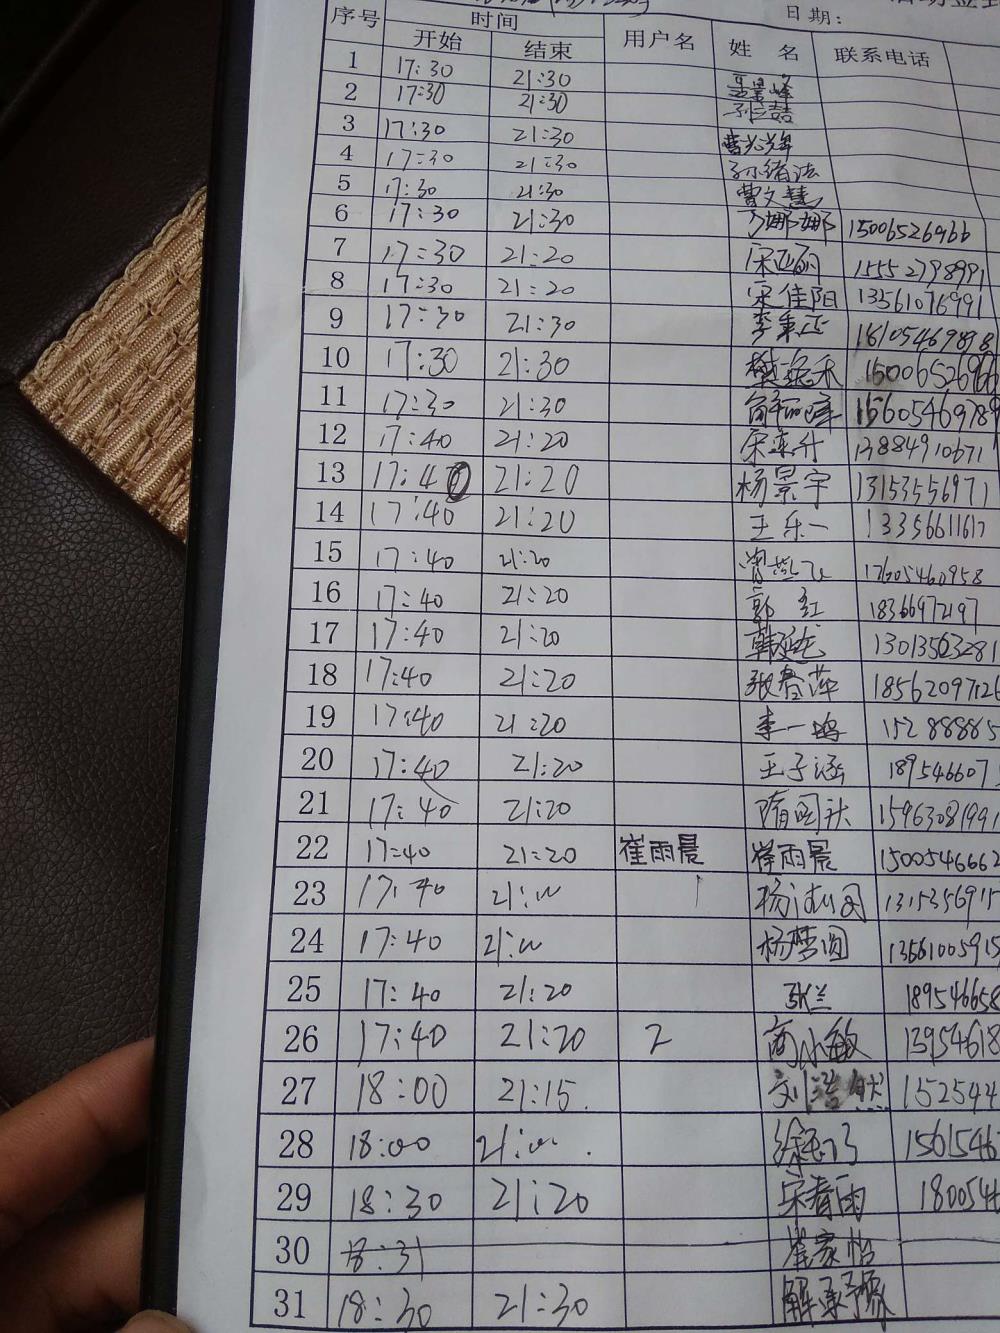 日期:
序号 时间 用户名 姓 名 联系电话
开始 结束
1 17:30 21:30
2 17:30 21:30
3 17:30 21:30
4 17:30 21:30 孙绪法
5 17:30 21:30 曹文慧
6 17:30 21:30 娜娜 15006526966
7 17:30 21:20 15552798991
8 17:30 21:20 宋佳阳 13561076991
9 17:30 21:30 李秉正
10 17:30 21:30 15006526966
11 17:30 21:30 15605469789
12 17:40 21:20 13884910671
13 17:40 21:20 杨景宇 13153556971
14 17:40 21:20 王乐一 13356611617
15 17:40 21:20 17605460958
16 17:40 21:20 郭红 18366972197
17 17:40 21:20 13013563281
18 17:40 21:20 张春萍 1856209726
19 17:40 21:20 李一鸣 152888885
20 17:40 21:20 王子涵 189546607
21 17:40 21:20 15963081991
22 17:40 21:20 崔雨晨 崔雨晨 1500546662
23 17:40 21:20 1315356915
24 17:40 21:20 杨梦圆 1356100591
25 17:40 21:20 张兰 189546658
26 17:40 21:20 2 商小敏 13954618
27 18:00 21:15. 刘浩然 152544
28 18:00 21:20 1561546
29 18:30 21:20 宋春雨 180054
30 18:31 崔家怡
31 18:30 21:30